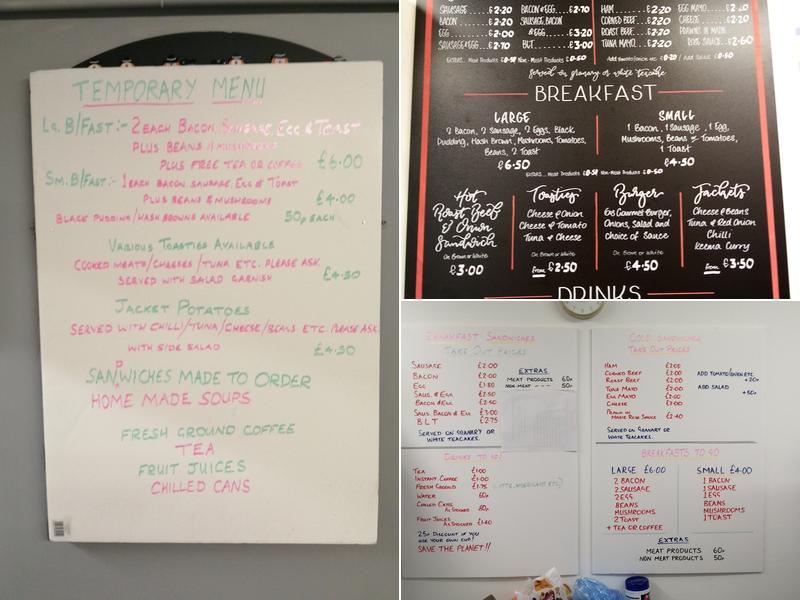 TEMPORARY MENU
LG. B/FAST:- 2 EACH BACON, SAUSAGE EGG & TOAST
PLUS BEANS & MUSHROOMS
PLUS FREE TEA OR COFFEE £6.00
SM. B/FAST:- 1 EACH BACON, SAUSAGE, EGG & TOAST
PLUS BEANS & MUSHROOMS £4.00
BLACK PUDDING/HASH BROWNS AVAILABLE 50p EACH
VARIOUS TOASTIES AVAILABLE
COOKED MEATS/CHEESES/TUNA ETC. PLEASE ASK.
SERVED WITH SALAD GARNISH £4.50
JACKET POTATOES
SERVED WITH CHILLI/TUNA/CHEESE/BEANS ETC. PLEASE ASK
WITH SIDE SALAD £4.50
SANDWICHES MADE TO ORDER
HOME MADE SOUPS
FRESH GROUND COFFEE
TEA
FRUIT JUICES
CHILLED CANS
SAUSAGE £2.20
BACON £2.20
EGG £2.00
SAUSAGE & EGG £2.70
BACON & EGG £2.70
SAUSAGE, BACON
& EGG £3.20
BLT £3.00
HAM £2.20
CORNED BEEF £2.20
ROAST BEEF £2.20
TUNA MAYO £2.20
EGG MAYO £2.20
CHEESE £2.20
PRAWNS IN MARIE
ROSE SAUCE £2.60
EXTRAS... Meat Products £0.50 Non-Meat Products £0.50
Add tomato/onion etc. £0.20 / Add Salad £0.50
Served on granary or white teacake
BREAKFAST
LARGE
2 Bacon, 2 Sausage, 2 Eggs, Black
Pudding, Hash Brown, Mushrooms, Tomatoes,
Beans, 2 Toast
£6.50
SMALL
1 Bacon, 1 Sausage, 1 Egg,
Mushrooms, Beans or Tomatoes,
1 Toast
£4.50
EXTRAS... Meat Products £0.50 Non-Meat Products £0.50
Hot
Roast Beef
& Onion
Sandwich
On Brown or White
£3.00
Toasties
Cheese & Onion
Cheese & Tomato
Tuna & Cheese
On Brown or White
from £2.50
Burger
6oz Gourmet Burger,
Onions, Salad and
choice of Sauce
On Brown or White
£4.50
Jackets
Cheese & Beans
Tuna & Red Onion
Chilli
Keema Curry
from £3.50
DRINKS
BREAKFAST SANDWICHES
TAKE OUT PRICES
SAUSAGE £2.00
BACON £2.00
EGG £1.80
SAUS. & EGG £2.50
BACON & EGG £2.50
SAUS. BACON & EGG £3.00
B L T £2.75
EXTRAS
MEAT PRODUCTS 60p
NON MEAT 50p
SERVED ON GRANARY OR
WHITE TEACAKES.
DRINKS TO GO!
TEA £1.00
INSTANT COFFEE £1.00
FRESH GROUND £1.75 (LATTE, AMERICANO ETC)
WATER 60p
CHILLED CANS
AS STOCKED 80p
FRUIT JUICES
AS STOCKED £1.40
25p DISCOUNT IF YOU
USE YOUR OWN CUP!
SAVE THE PLANET!!
COLD SANDWICHES
TAKE OUT PRICES
HAM £2.00
CORNED BEEF £2.00
ROAST BEEF £2.00
TUNA MAYO £2.00
EGG MAYO £2.00
CHEESE £2.00
PRAWN IN
MARIE ROSE SAUCE £2.40
ADD TOMATO/ONION ETC.
+20p
ADD SALAD
+50p
SERVED ON GRANARY OR
WHITE TEACAKES.
BREAKFASTS TO GO
LARGE £6.00
2 BACON
2 SAUSAGE
2 EGG
BEANS
MUSHROOMS
2 TOAST
+ TEA OR COFFEE
SMALL £4.00
1 BACON
1 SAUSAGE
1 EGG
BEANS
MUSHROOMS
1 TOAST
EXTRAS
MEAT PRODUCTS 60p
NON MEAT PRODUCTS 50p